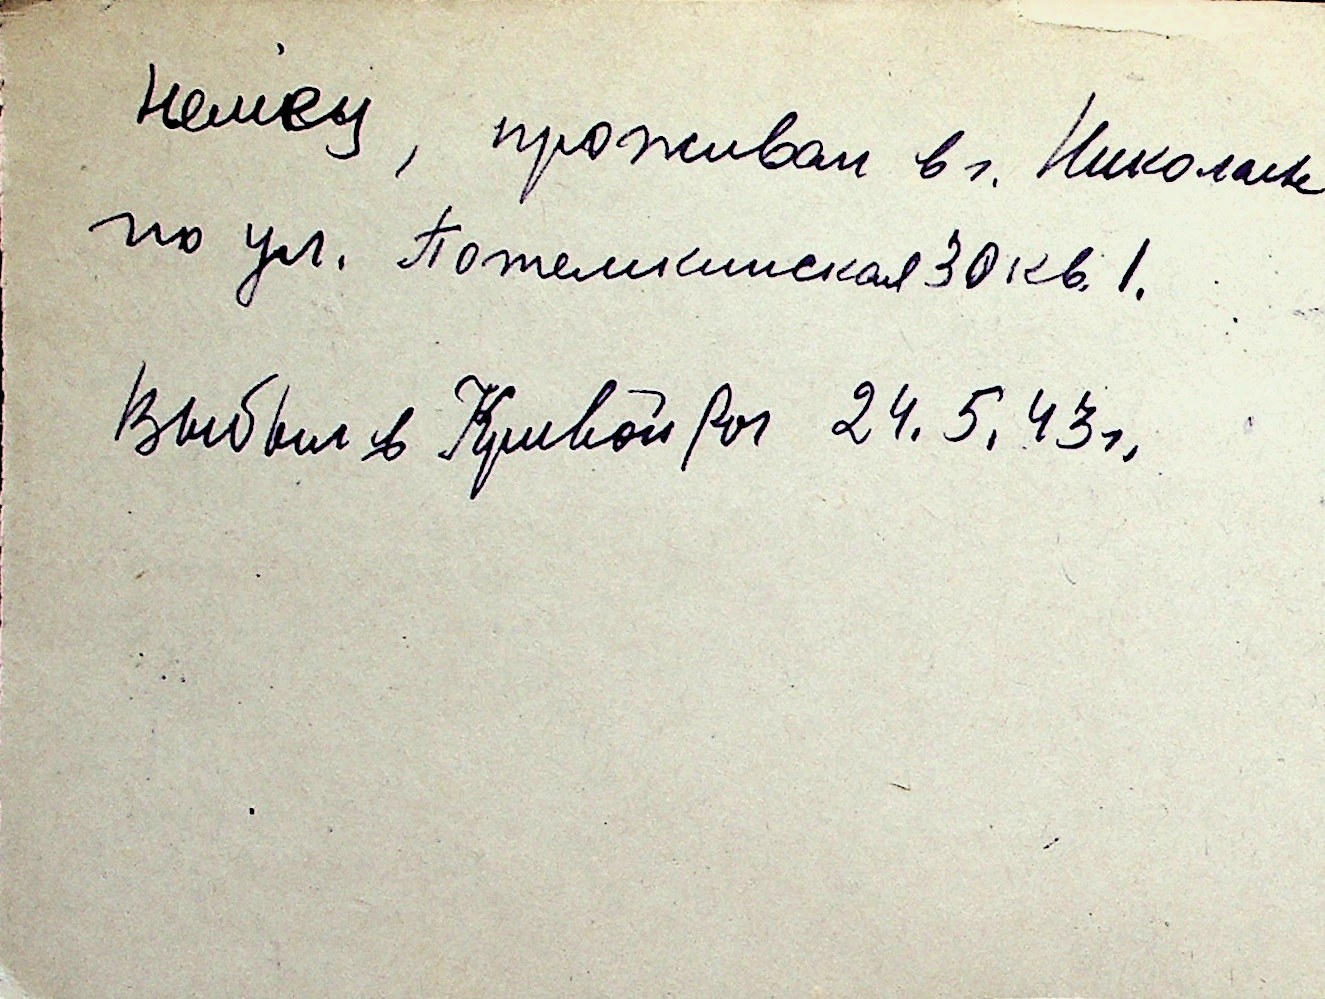 Немец, проживал в г. Николаеве
по ул. Потемкинская 30 кв. 1.
Выбыл в Кривой Рог 24.5.43 г.